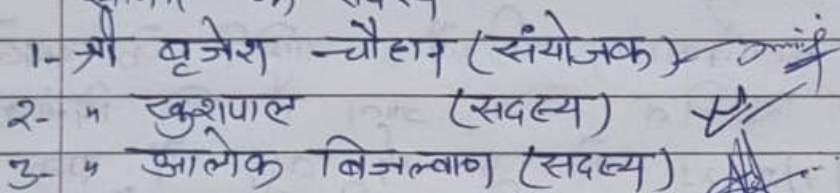 1- श्री बृजेश चौहान (संयोजक)
2- " खुशपाल (सदस्य)
3- " आलोक बिजल्वाण (सदस्य)